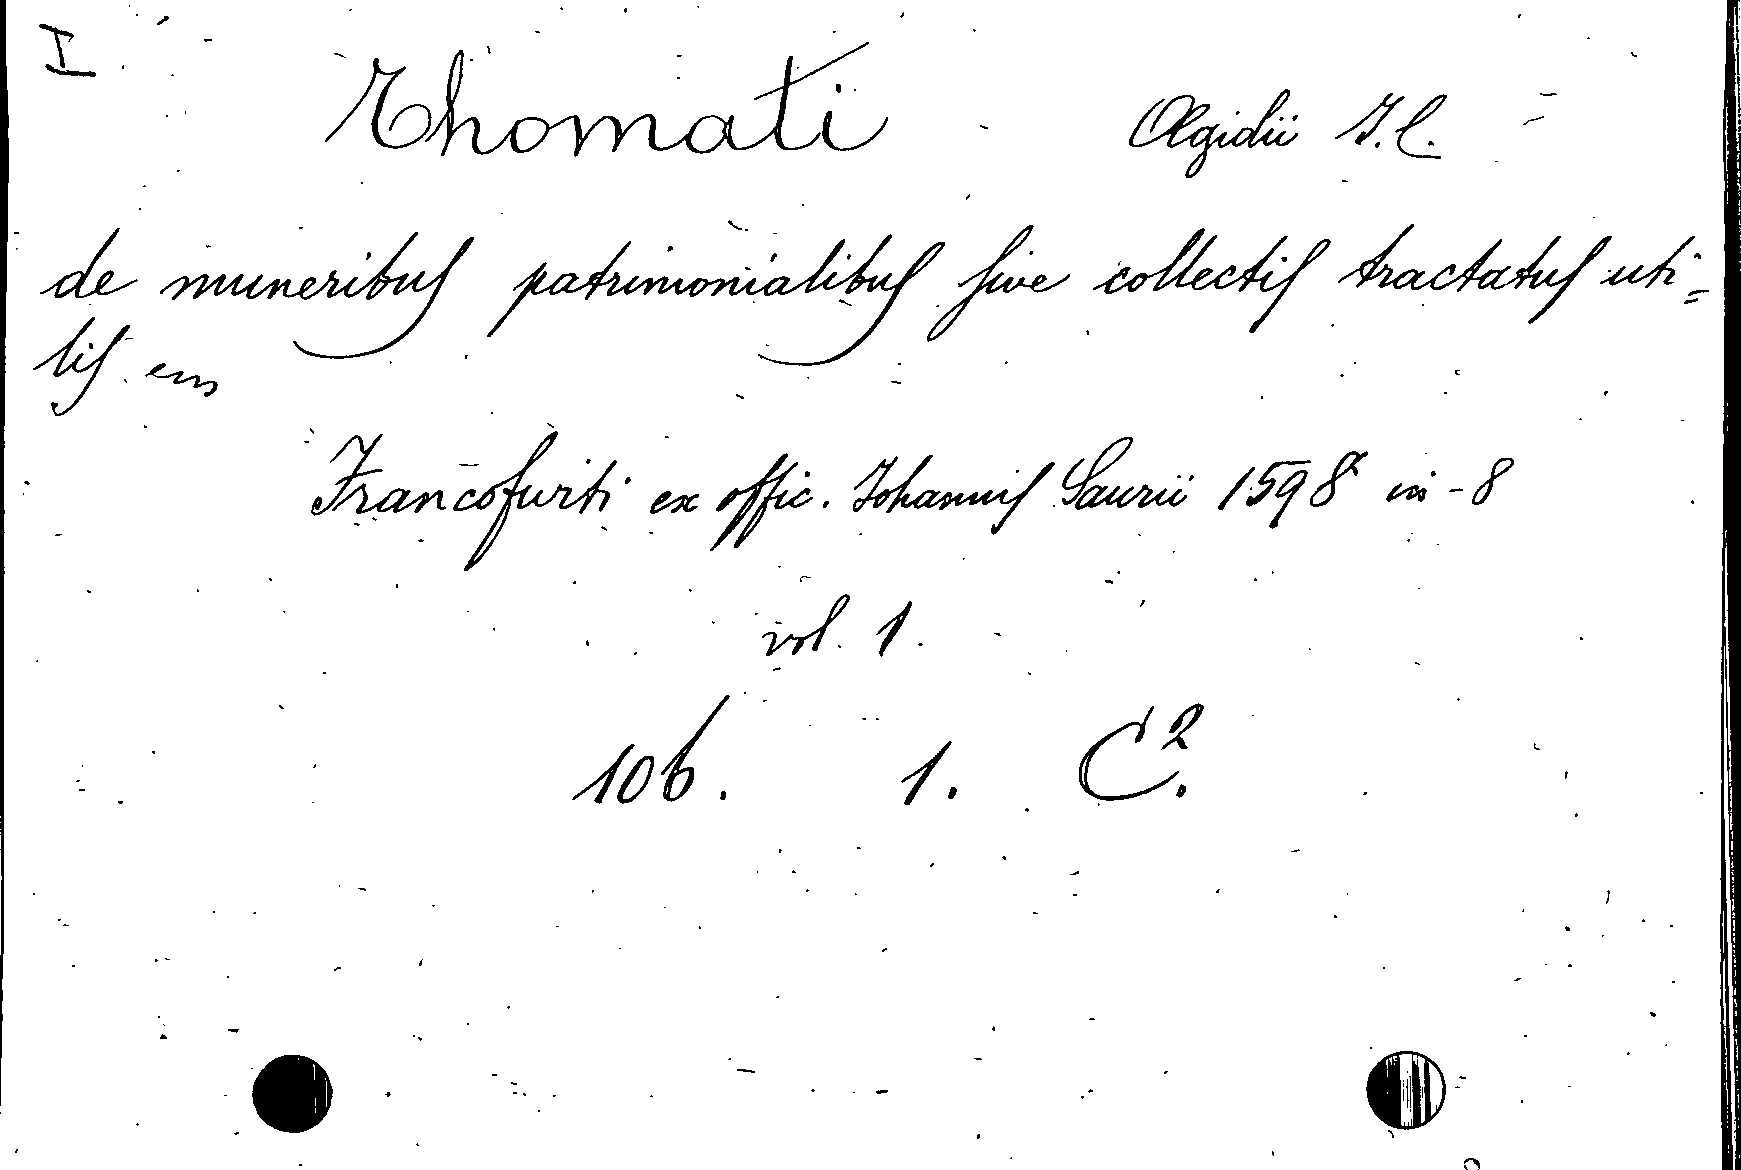 I
Thomati Ægidii I. C.
de muneribus patrimonialibus sive collectis tractatus uti=
lis
Francofurti ex offic. Iohannis Saurii 1598 in-8
vol. 1.
106. 1. C².